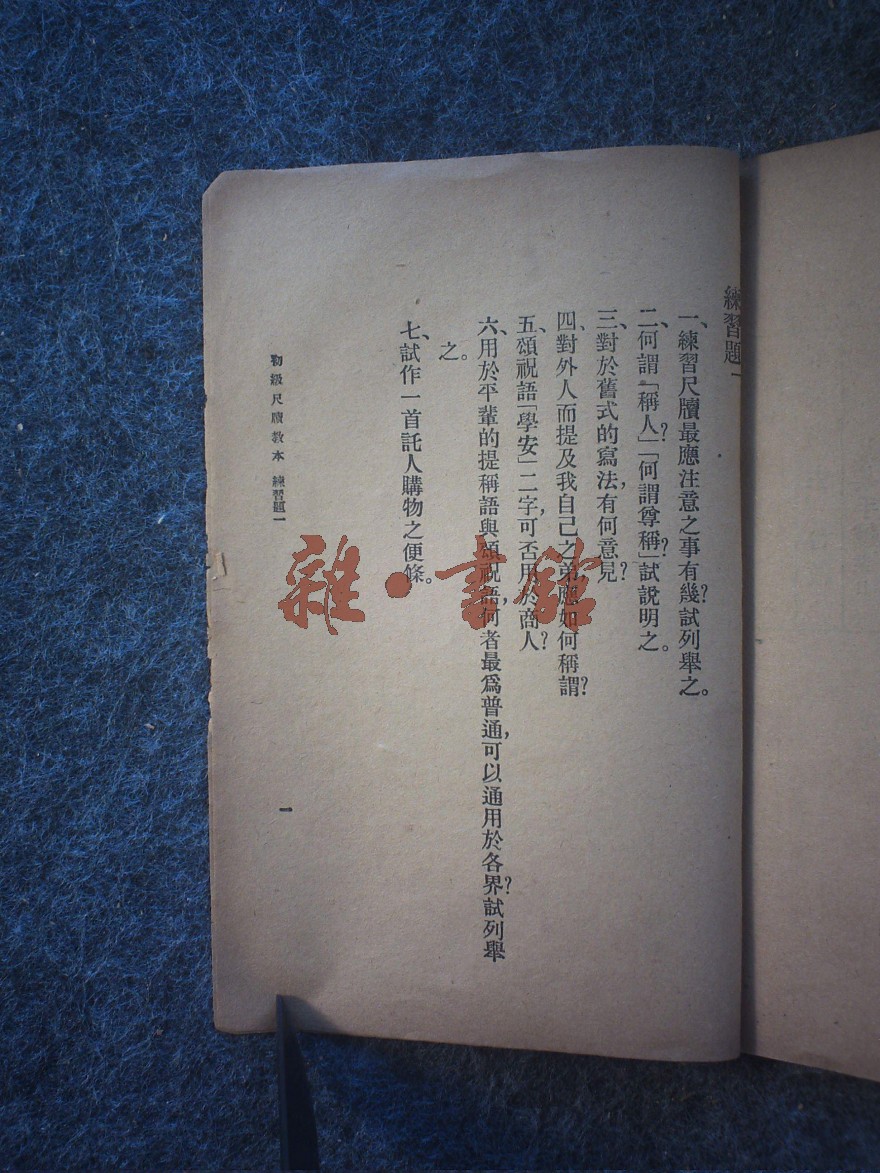 練習題一
一、練習尺牘最應注意之事有幾?試列舉之。
二、何謂「稱人」?「何謂尊稱」?試說明之。
三、對於舊式的寫法,有何意見?
四、對外人而提及我自己之弟,應如何稱謂?
五、頌祝語「學安」二字,可否用於商人?
六、用於平輩的提稱語與頌祝語,何者最爲普通,可以通用於各界?試列舉
之。
七、試作一首託人購物之便條。
初級尺牘教本 練習題一
一
雜·書館